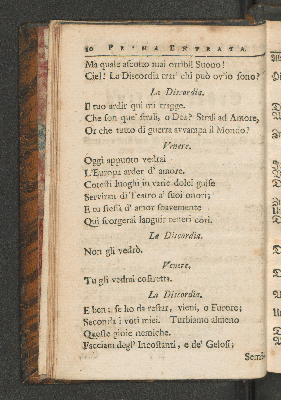 10 PRIMA ENTRATA
Ma quale ascolto mai orribil Suono!
Ciel! La Discordia trar' chi può ov'io sono?
La Discordia.
Il tuo ardir qui mi tragge.
Che son que' strali, o Dea? Strali ad Amore,
Or che tutto di guerra avvampa il Mondo?
Venere.
Oggi appunto vedrai
L'Europa arder d' amore.
Cotesti luoghi in varie dolci guise
Serviran di Teatro a' suoi onori;
E tu stessa d' amor soavemente
Qui scorgerai languir teneri cori.
La Discordia.
Non gli vedrò.
Venere.
Tu gli vedrai costretta.
La Discordia.
E ben: se ho da restar, vieni, o Furore;
Seconda i voti miei. Turbiamo almeno
Queste gioie nemiche.
Facciam degl' Incostanti, e de' Gelosi;